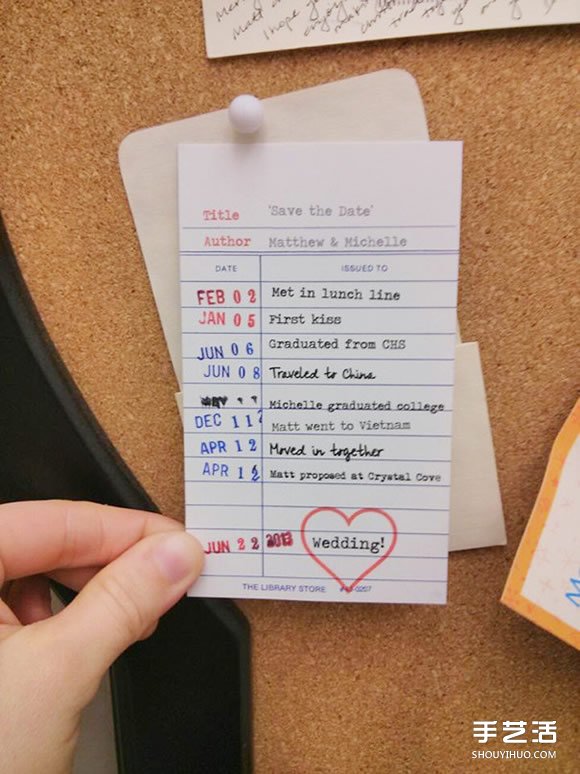 Title 'Save the Date'
Author Matthew & Michelle
DATE ISSUED TO
FEB 02 Met in lunch line
JAN 05 First kiss
JUN 06 Graduated from CHS
JUN 08 Traveled to China
Michelle graduated college
DEC 11 Matt went to Vietnam
APR 12 Moved in together
APR 12 Matt proposed at Crystal Cove
JUN 22 2013 Wedding!
THE LIBRARY STORE
手艺活
SHOUYIHUO.COM